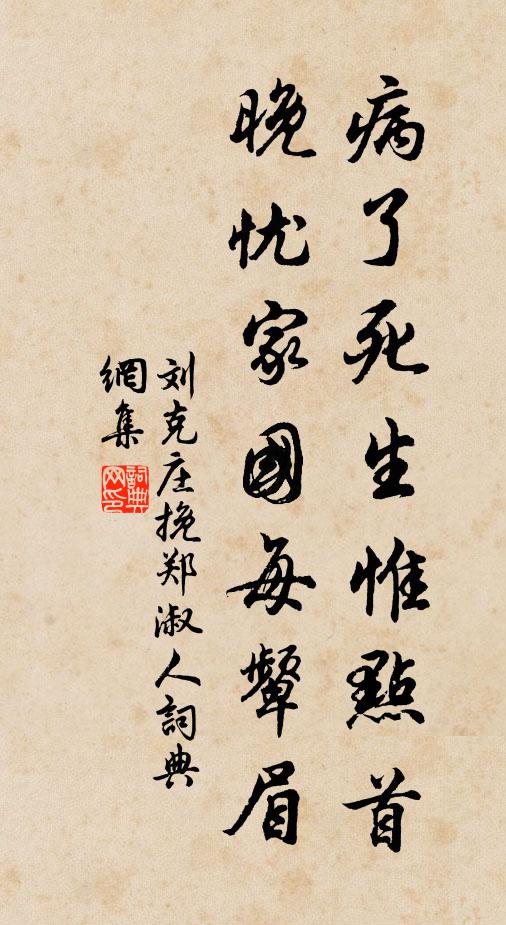 病了死生惟點首
晚忧家國每顰眉
刘克庄挽郑淑人詞典
網集
詞典網印